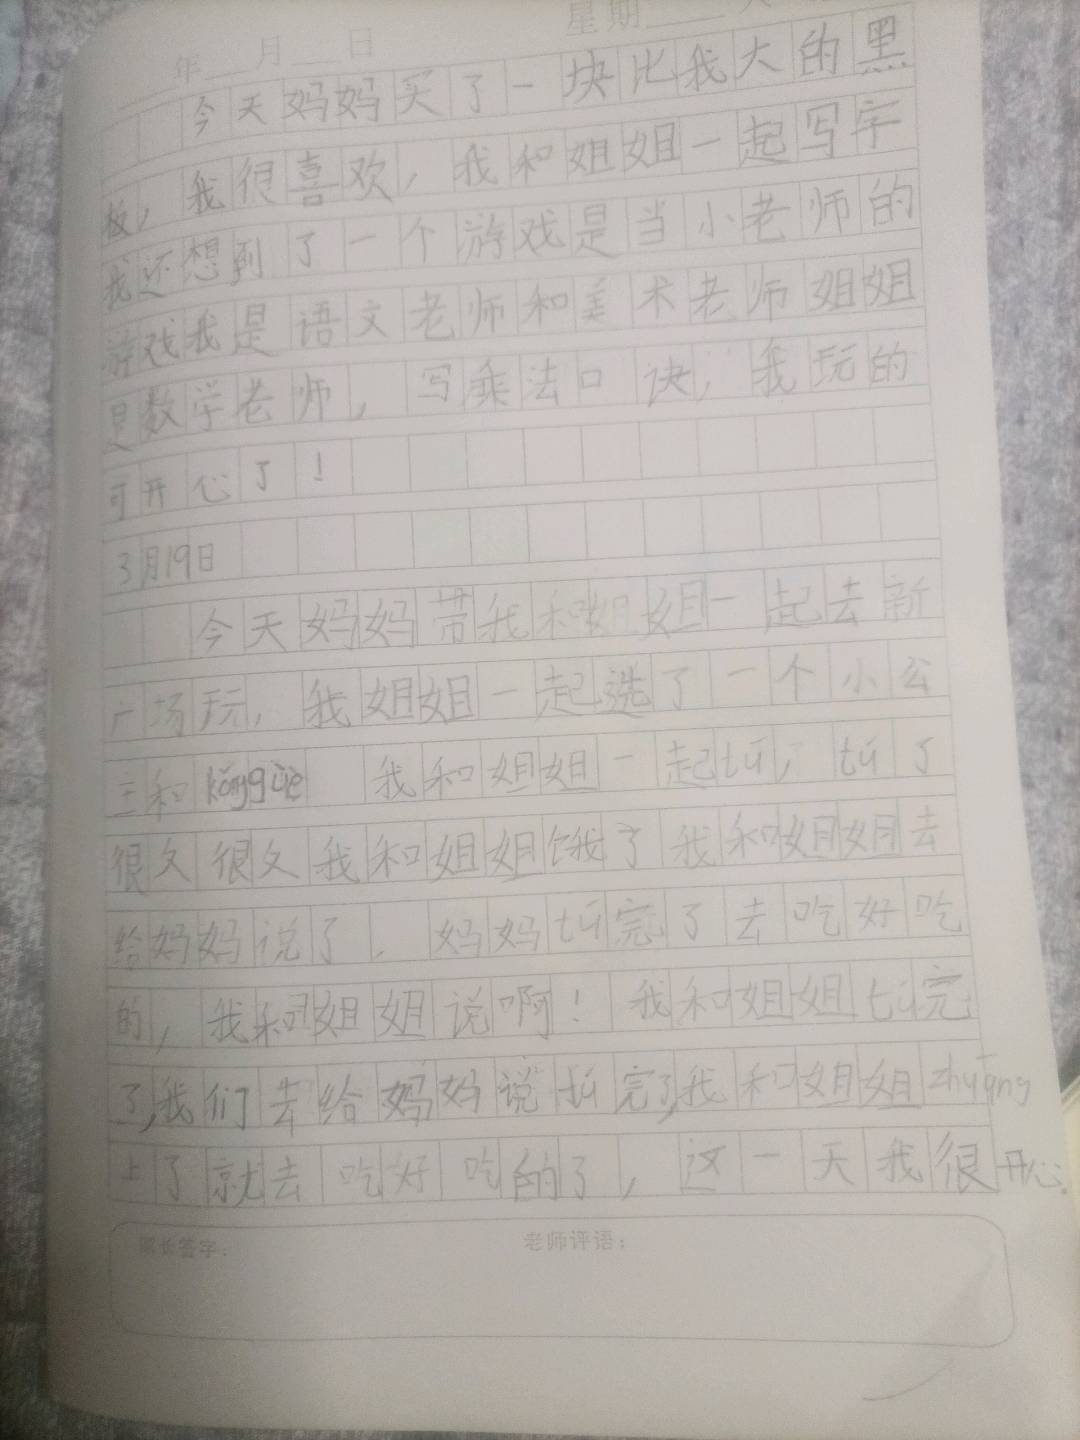 年 月 日 星期
今天妈妈买了一块比我大的黑
板，我很喜欢，我和姐姐一起写字
我还想到了一个游戏是当小老师的
游戏我是语文老师和美术老师姐姐
是数学老师，写乘法口诀，我玩的
可开心了！
3月19日
今天妈妈带我和姐姐一起去新
广场玩，我姐姐一起选了一个小公
主和kǒngqüè 我和姐姐一起tú，tú了
很久很久我和姐姐饿了我和姐姐去
给妈妈说了，妈妈tú完了去吃好吃
的，我和姐姐说啊！我和姐姐tú完
了，我们去给妈妈说tú完了，我和姐姐zhuāng
上了就去吃好吃的了，这一天我很开心。
家长签字： 老师评语：